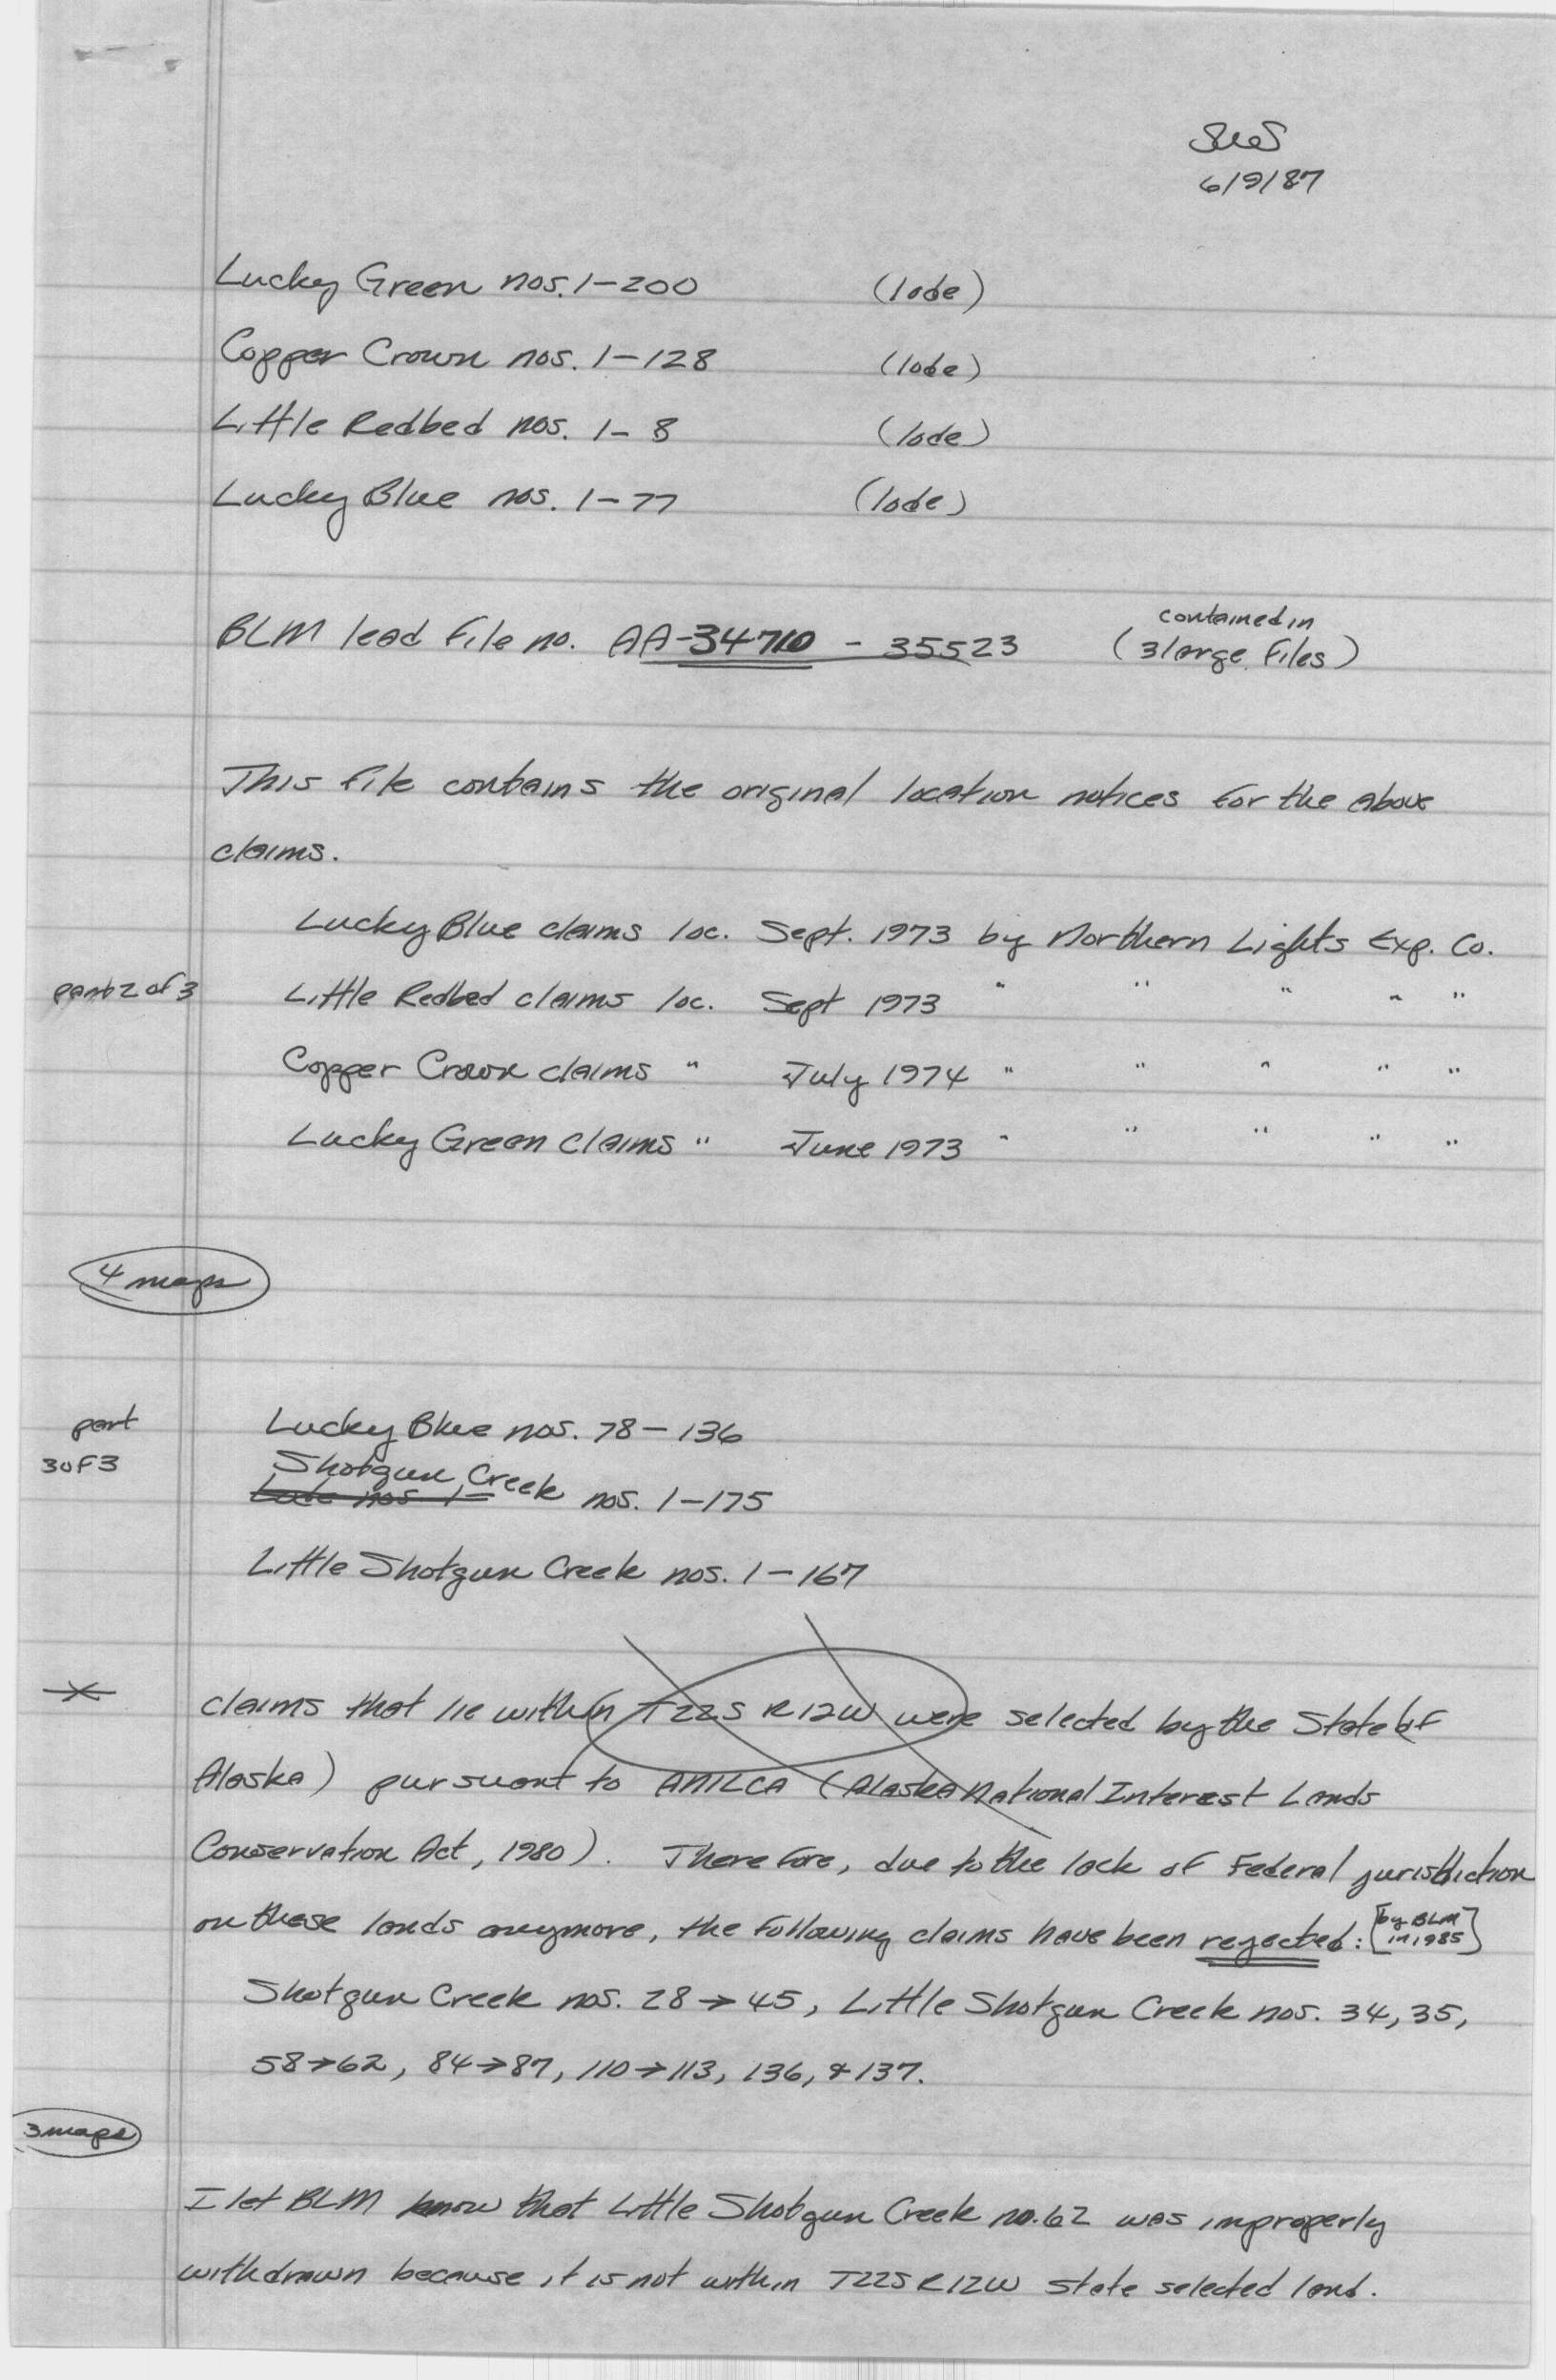 6/9/87
Lucky Green nos. 1-200 (lode)
Copper Crown nos. 1-128 (lode)
Little Redbed nos. 1-8 (lode)
Lucky Blue nos. 1-77 (lode)
BLM lead file no. AA-34710 - 35523 (contained in 3 large files)
This file contains the original location notices for the above
claims.
Lucky Blue claims loc. Sept. 1973 by Northern Lights Exp. Co.
part 2 of 3 Little Redbed claims loc. Sept 1973 " " " " "
Copper Crown claims " July 1974 " " " " "
Lucky Green claims " June 1973 " " " " "
4 maps
part Lucky Blue nos. 78-136
3 of 3 Shotgun Creek nos. 1-175
Little Shotgun Creek nos. 1-167
claims that lie within T22S R12W were selected by the State (of
Alaska) pursuant to ANILCA (Alaska National Interest Lands
Conservation Act, 1980). Therefore, due to the lack of Federal jurisdiction
on these lands anymore, the following claims have been rejected: [by BLM in 1985]
Shotgun Creek nos. 28→45, Little Shotgun Creek nos. 34, 35,
58→62, 84→87, 110→113, 136, & 137.
3 maps
I let BLM know that Little Shotgun Creek no. 62 was improperly
withdrawn because it is not within T22S R12W state selected land.